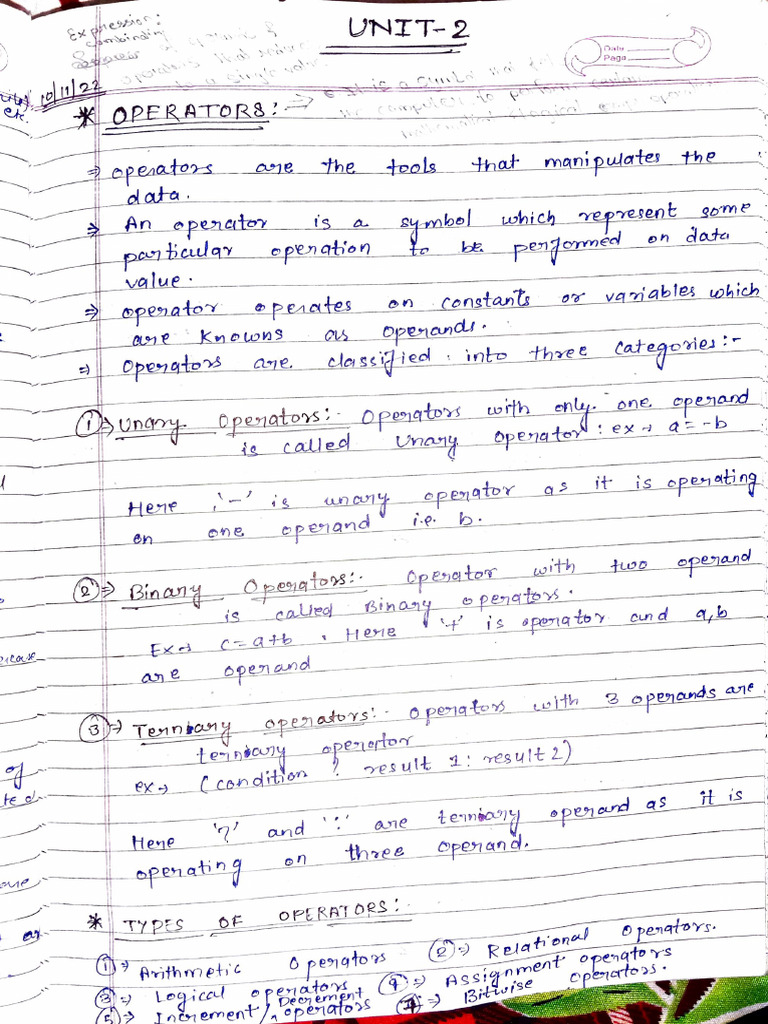 UNIT-2
Expression:
combining
Date
Page
10/11/22
* OPERATORS:-
It is a symbol that tell
the computer to perform certain
⇒ operators are the tools that manipulates the
data.
⇒ An operator is a symbol which represent some
particular operation to be performed on data
value.
⇒ operator operates on constants or variables which
are knowns as operands.
⇒ operators are classified into three categories:-
①⇒ Unary Operators:- Operators with only one operand
is called Unary operator: ex→ a=-b
Here '-' is unary operator as it is operating
on one operand i.e. b.
②⇒ Binary Operators:- Operator with two operand
is called Binary operators.
Ex→ c=a+b. Here '+' is operator and a,b
are operand
③⇒ Terniary operators:- operators with 3 operands are
terniary operator
ex→ (condition ? result 1: result 2)
Here '?' and ':' are terniary operand as it is
operating on three operand.
* TYPES OF OPERATORS:-
①⇒ Arithmetic Operators ②⇒ Relational Operators.
③⇒ Logical operators ④⇒ Assignment operators
⑤⇒ Increment/Decrement operators ⑦⇒ Bitwise operators.
etc.
of
ted
ar